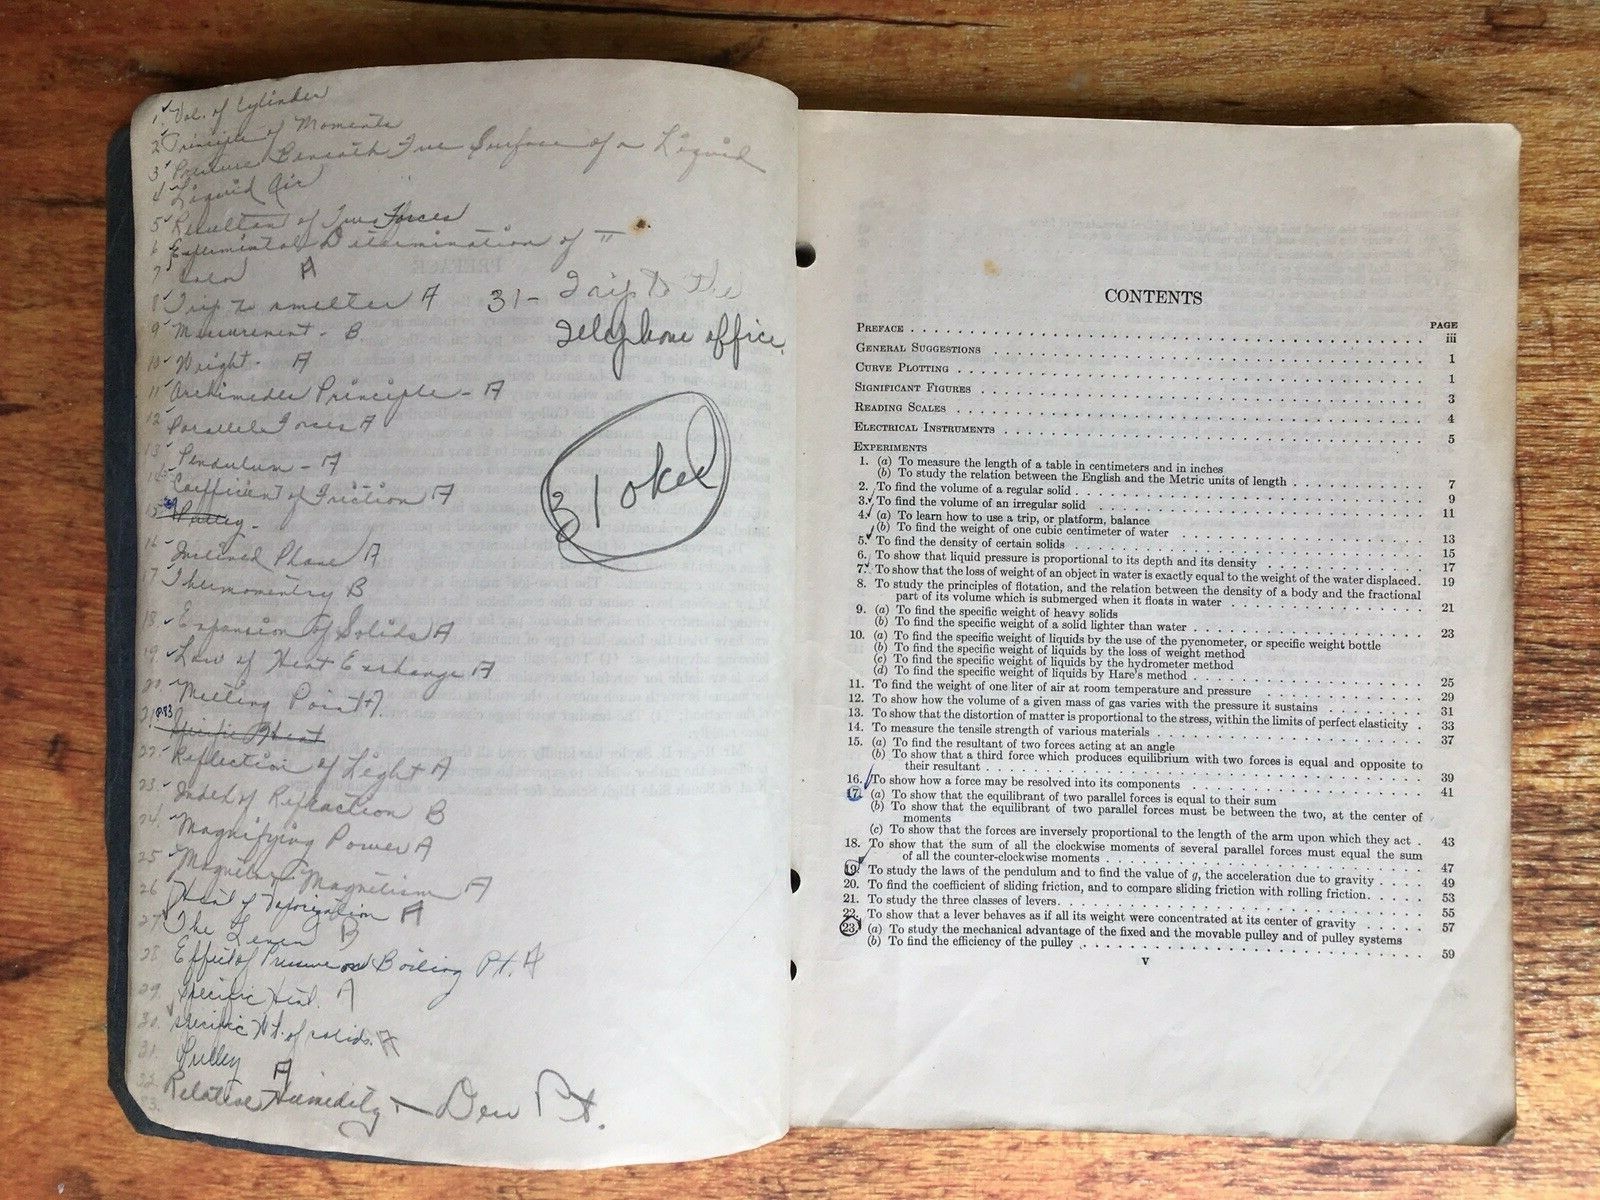 1 Vol. of Cylinder
2 Principle of Moments
3 Pressure Beneath The Surface of a Liquid
4 Liquid Air
5 Resultant of Two Forces
6 Experimental Determination of π
7 Color A
8 Trip to smelter A
31- Trip to the
telephone office.
9 Measurement - B
10 Weight - A
11 Archimedes Principle - A
12 Parallel Forces A
13 Pendulum - A
14 Coefficient of Friction A
15 Pulley -
16 Inclined Plane A
17 Thermomentry B
18 Expansion of Solids A
19 Law of Heat Exchange A
20 Melting Point A
21 P.83 Specific Heat
22 Reflection of Light A
23 Index of Refraction B
24 Magnifying Power A
25 Magnets - Magnetism A
26 Heat of Vaporization A
27 The Lever B
28 Effect of Pressure on Boiling Pt. A
29 Specific Heat. A
30 specific Wt. of solids. A
31 Pulley A
32 Relative Humidity - Dew Pt.
33.
31 oked
CONTENTS
PAGE
PREFACE iii
GENERAL SUGGESTIONS 1
CURVE PLOTTING 1
SIGNIFICANT FIGURES 3
READING SCALES 4
ELECTRICAL INSTRUMENTS 5
EXPERIMENTS
1. (a) To measure the length of a table in centimeters and in inches
(b) To study the relation between the English and the Metric units of length 7
2. To find the volume of a regular solid 9
3. To find the volume of an irregular solid 11
4. (a) To learn how to use a trip, or platform, balance
(b) To find the weight of one cubic centimeter of water 13
5. To find the density of certain solids 15
6. To show that liquid pressure is proportional to its depth and its density 17
7. To show that the loss of weight of an object in water is exactly equal to the weight of the water displaced. 19
8. To study the principles of flotation, and the relation between the density of a body and the fractional
part of its volume which is submerged when it floats in water 21
9. (a) To find the specific weight of heavy solids
(b) To find the specific weight of a solid lighter than water 23
10. (a) To find the specific weight of liquids by the use of the pycnometer, or specific bottle
(b) To find the specific weight of liquids by the loss of weight method
(c) To find the specific weight of liquids by the hydrometer method
(d) To find the specific weight of liquids by Hare's method 25
11. To find the weight of one liter of air at room temperature and pressure 29
12. To show how the volume of a given mass of gas varies with the pressure it sustains 31
13. To show that the distortion of matter is proportional to the stress, within the limits of perfect elasticity 33
14. To measure the tensile strength of various materials 37
15. (a) To find the resultant of two forces acting at an angle
(b) To show that a third force which produces equilibrium with two forces is equal and opposite to
their resultant 39
16. To show how a force may be resolved into its components 41
17. (a) To show that the equilibrant of two parallel forces is equal to their sum
(b) To show that the equilibrant of two parallel forces must be between the two, at the center of
moments
(c) To show that the forces are inversely proportional to the length of the arm upon which they act 43
18. To show that the sum of all the clockwise moments of several parallel forces must equal the sum
of all the counter-clockwise moments 47
19. To study the laws of the pendulum and to find the value of g, the acceleration due to gravity 49
20. To find the coefficient of sliding friction, and to compare sliding friction with rolling friction. 53
21. To study the three classes of levers 55
22. To show that a lever behaves as if all its weight were concentrated at its center of gravity 57
23. (a) To study the mechanical advantage of the fixed and the movable pulley and of pulley systems
(b) To find the efficiency of the pulley 59
v